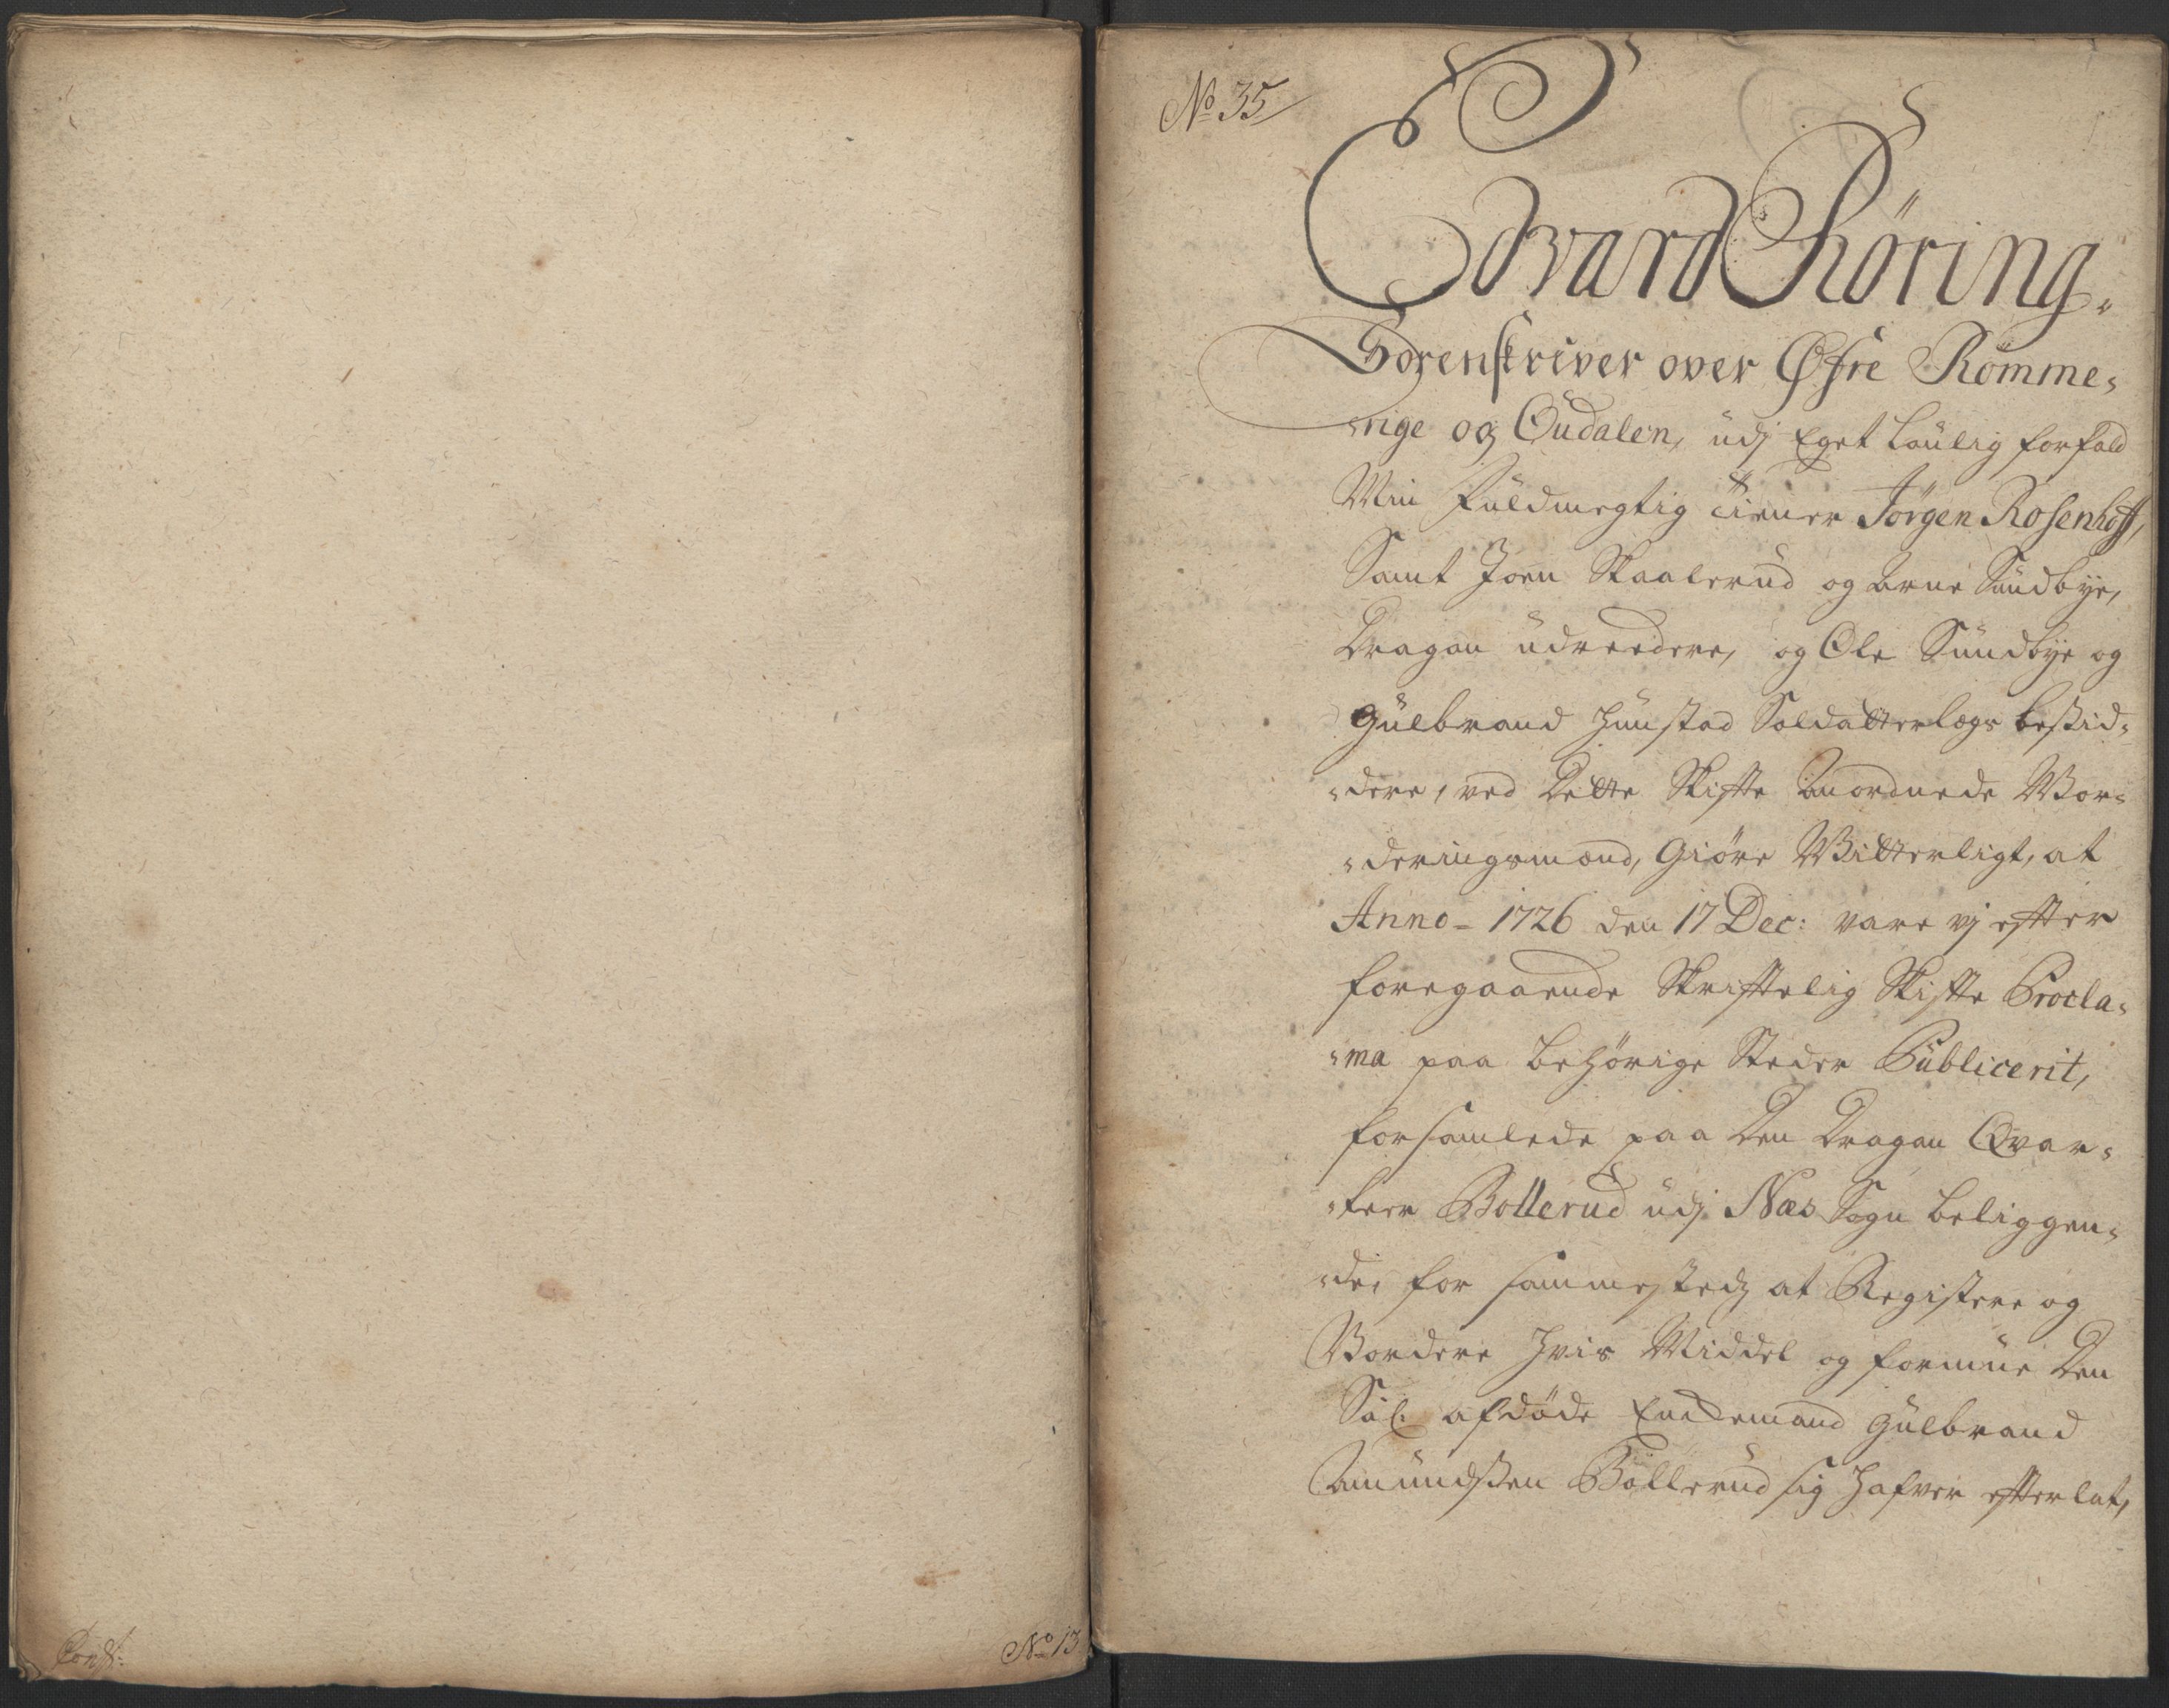 Conf:
No 13
No 35
Edvard Röring.
Sorenskriver over Øfre Romme-
-rige og Oudalen, udj Eget Laulig forfald
Min Fuldmegtig tiener Jörgen Rosenhoff,
Samt Joen Skaalerud og Arne Sundbye,
Dragon udreedere, og Ole Sundbye og
Gulbrand Hunstad Soldatterlægs besid-
-dere, ved Dette Skifte Anordnede Vor-
-deringsmænd, Giöre Vitterligt, at
Anno - 1726 den 17 Dec: vare vj efter
foregaaende Skriftelig Skifte Procla-
-ma paa behörige Steder Publicerit,
forsamlede paa Den Dragon Qvar-
-teer Bollerud udj Næs Sogn beliggen-
-de, for sammesteds at Registere og
Vordere Hvis Middel og formue Den
Sal. afdöde Enckemand Gulbrand
Amundsen Bollerud sig Hafver efterlat,